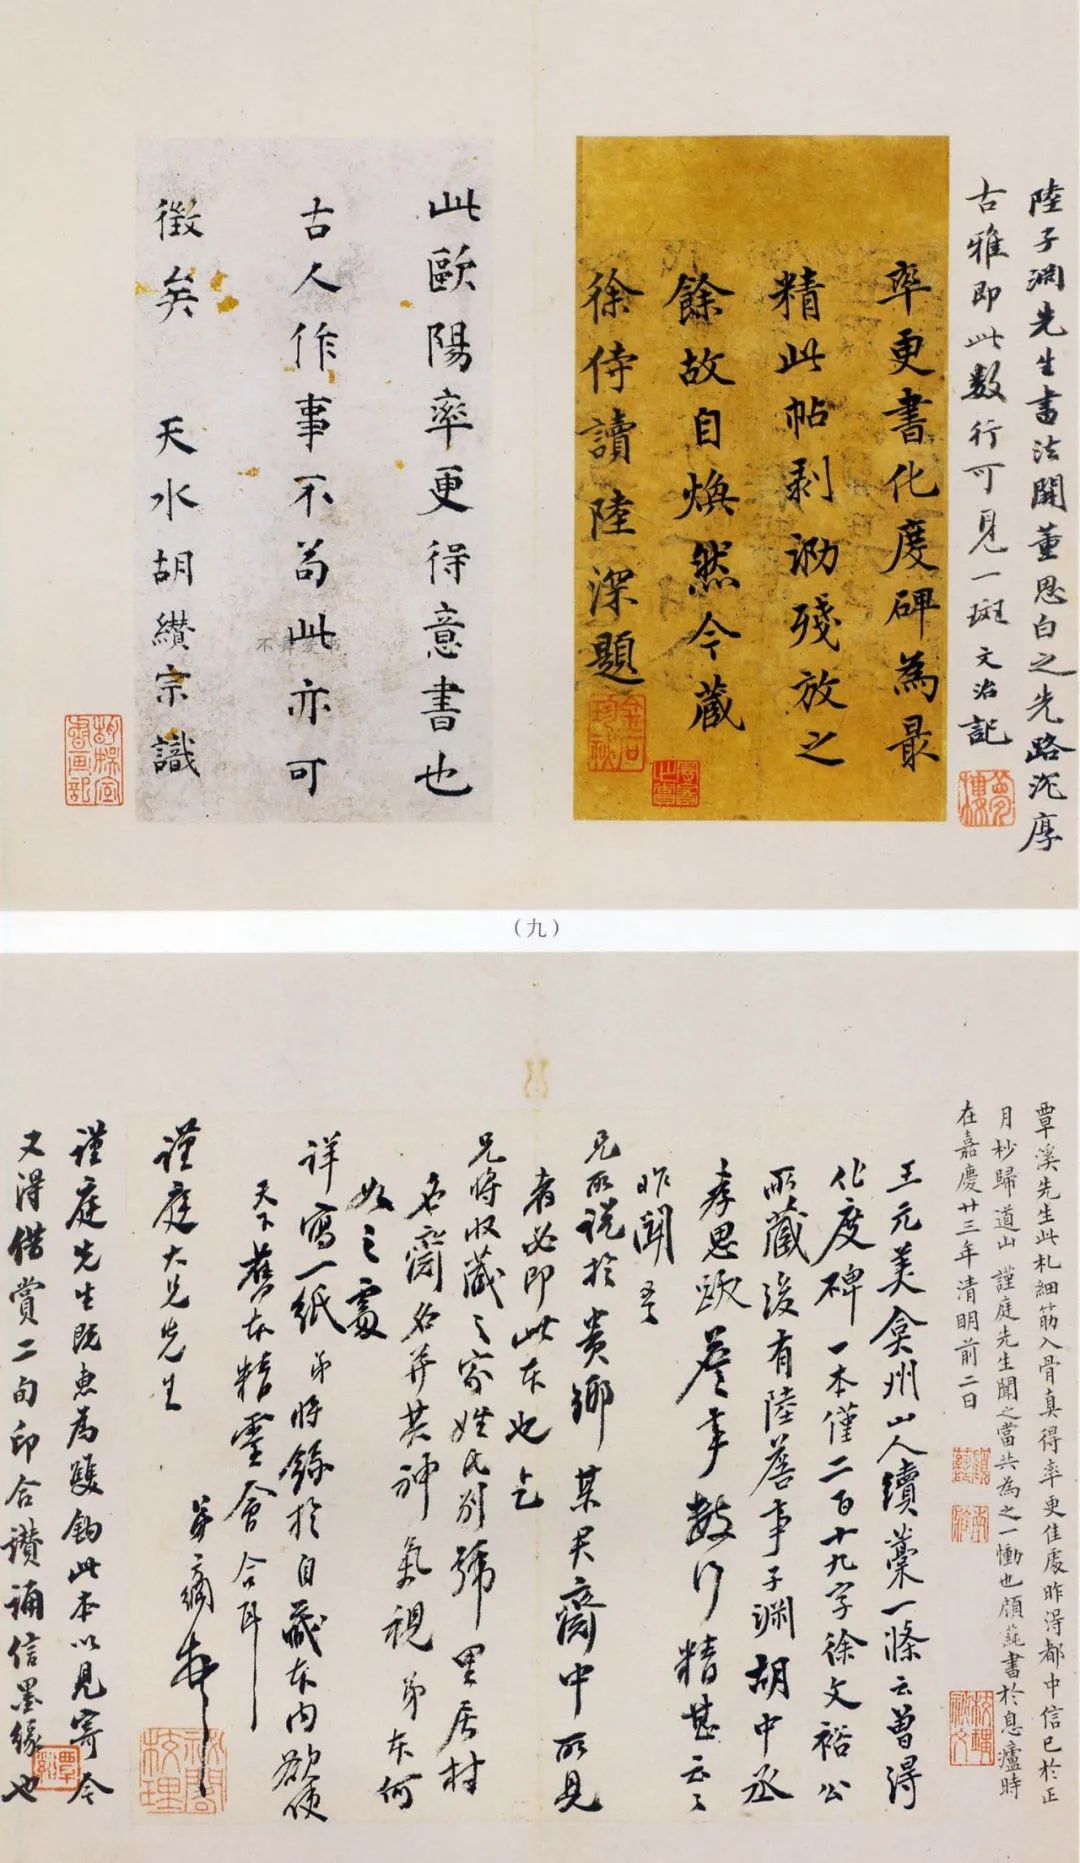 陸子淵先生書法開董思白之先路沉厚
古雅即此数行可見一斑 文治記
夢樓
率更書化度碑為最
精此帖剥泐殘放之
餘故自煥然今藏
徐侍讀 陸深題
此歐陽率更得意書也
古人作事不苟此亦可
徵矣 天水胡纘宗識
(九)
覃溪先生此札細筋入骨真得率更佳處昨得都中信已於正
月杪歸道山 謹庭先生聞之當共為之一慟也顧蒓書於息廬時
在嘉慶廿三年清明前二日
王元美弇州山人續藁一條云曾得
化度碑一本僅二百十九字徐文裕公
所藏後有陸詹事子淵胡中丞
孝思歐詹事數行精甚云云
昨聞
兄所説於貴鄉某君齋中所見
者必即此本也乞
兄將収藏之家姓氏別號里居村
名齋名并其神氣視弟本何
如之處
詳寫一紙弟將錄於自藏本内欲使
天下舊本精靈會合耳
謹庭大兄先生
弟方綱
謹庭先生既惠為雙鉤此本以見寄今
又得借賞二旬印合讃誦信墨緣也
覃溪